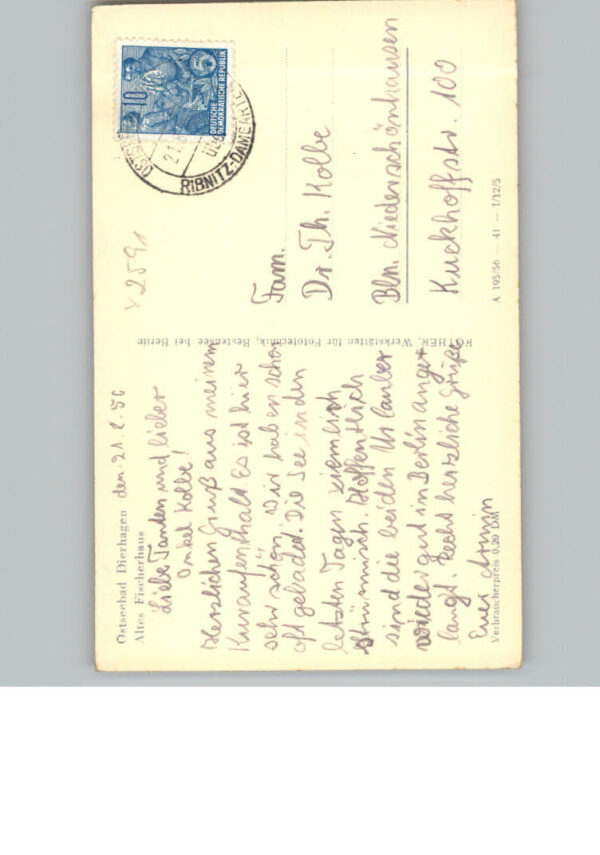 Ostseebad Dierhagen
Altes Fischerhaus
den 21.8.56
Liebe Tanten und lieber
Onkel Kolbe!
Herzlichen Gruß aus meinem
Kuraufenthalt Es ist hier
sehr schön, wir haben schon
oft gebadet. Die See in den
letzten Tagen ziemlich
stürmisch. Hoffentlich
sind die beiden Urlauber
wieder gut in Berlin ange
langt. Recht herzliche Grüße
Euer Armin
Verbraucherpreis 0,20 DM
RÖTHER, Werkstätten für Fototechnik, Bestensee bei Berlin
v 2591
DEUTSCHE
DEMOKRATISCHE REPUBLIK
10
5
RIBNITZ-DAMGARTEN
Fam.
Dr. Th. Kolbe
Bln. Niederschönhausen
Kuckhoffstr. 100
A 195/56 — 41 — 1/12/5